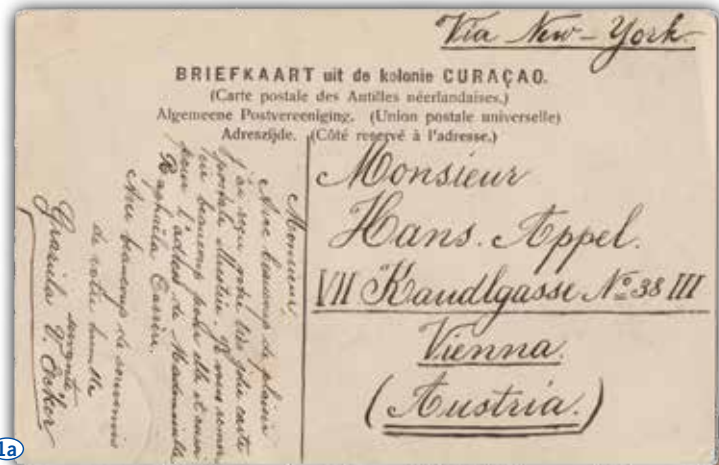 Via New-York.
BRIEFKAART uit de kolonie CURAÇAO.
(Carte postale des Antilles néerlandaises.)
Algemeene Postvereeniging. (Union postale universelle)
Adreszijde. (Côté reservé à l'adresse.)
Monsieur
Hans. Appel.
VII Kandlgasse No 38 III
Vienna.
(Austria.)
Monsieur,
Avec beaucoup de plaisir
j'ai reçu votre très jolie carte
postale Illustrée. Je vous remer
cie beaucoup pour elle et aussi
pour l'adresse de Mademoiselle
Raphaela
Avec beaucoup de souvenirs
de votre humble
servante
Graziela V.
1a